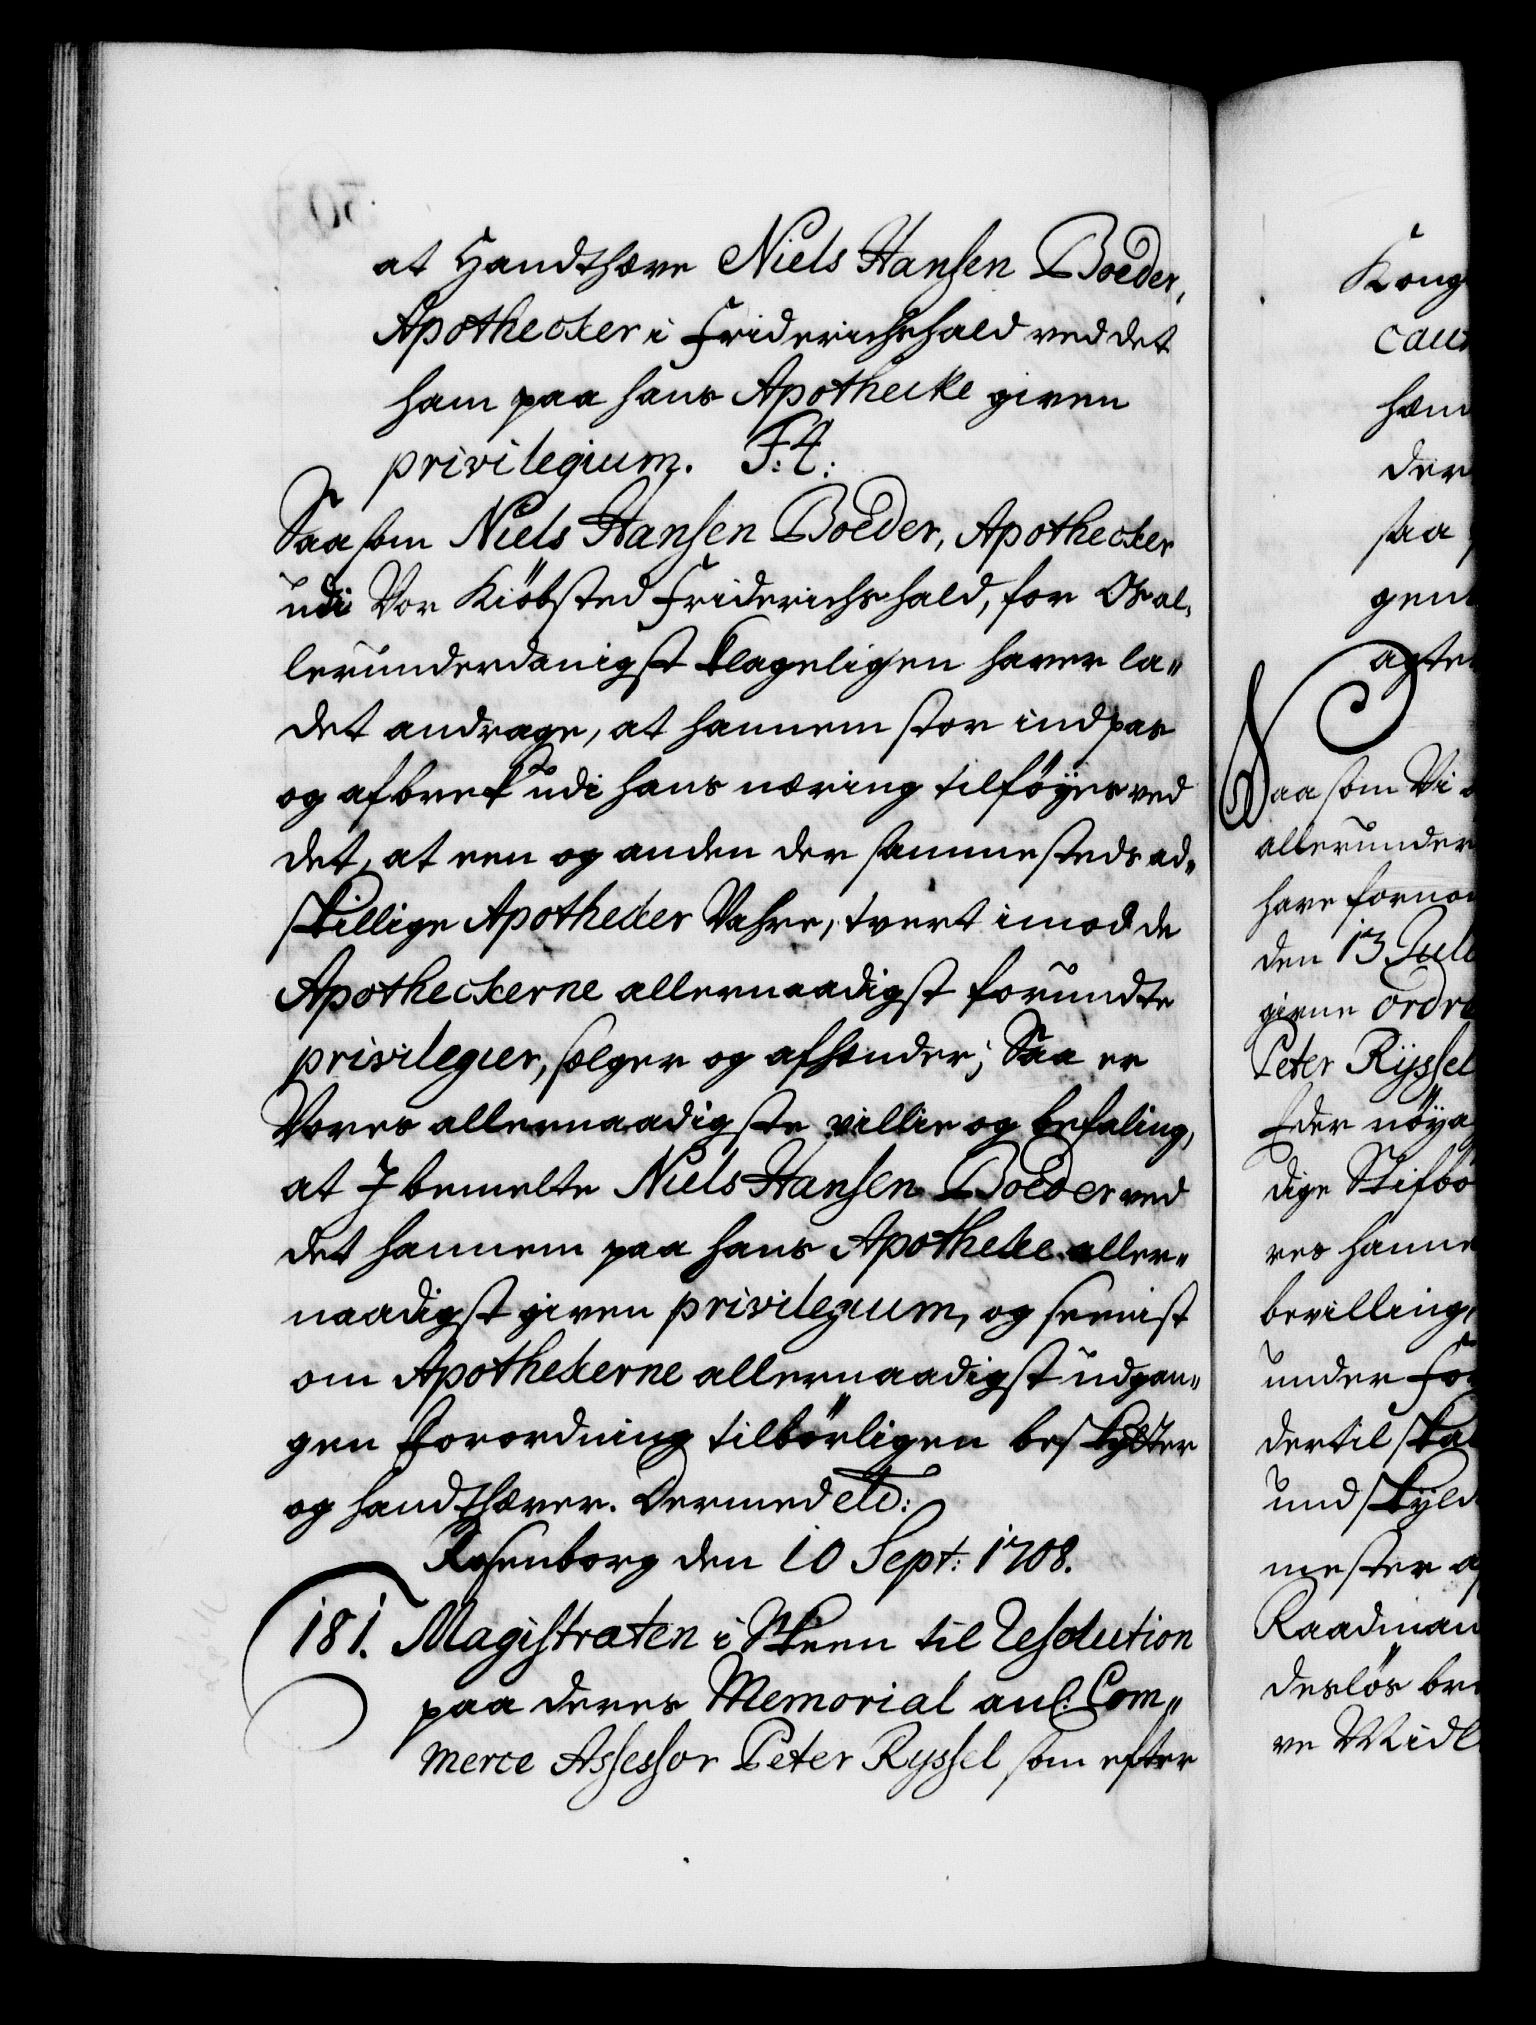 at Handthæve Niels Hansen Boeder,
Apothecker i Friderichshald ved det
ham paa hans Apothecke given
privilegium. F: 4:
Saasom Niels Hansen Boeder, Apothecker
udi Vor Kiöbsted Friderichshald, for Os al-
lerunderdanigst klageligen haver la-
det andrage, at hannem stor indpas
og afbrek udi hans næring tilföÿes ved
det, at een og anden der sammesteds ad-
skillige Apothecker Vahre, tvert imod de
Apotheckerne allernaadigst forundte
privilegier, selger og afhender; Saa er
Vores allernaadigste villie og befaling,
at I bemelte Niels Hansen Boeder ved
det hannem paa hans Apothecke aller-
naadigst given privilegium, og seenist
om Apotheckerne allernaadigst udgan-
gen forordning tilbörligen beskytter
og handthæver. Dermed etc:
Rosenborg den 10 Sept: 1708.
181. Magistraten i Skeen til Resolution
paa deres Memorial anl: Com-
merce Assessor Peter Ryssel som efter
Kong
caut
hæm
der
saa
gen
agte
Saasom Vi
allerunder
have fornom
den 13 Juli
givne ordre
Peter Rÿssel
Eder nöÿa
dige Stifbö
res hanne
bevilling,
under For
dertil ska
und skÿld
mester
Raadman
deslös br
ve Midl